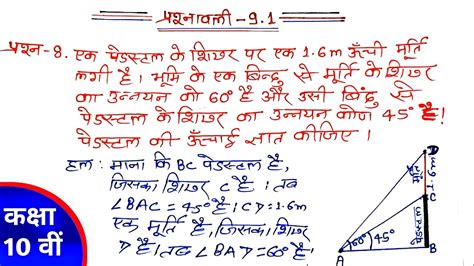 प्रश्नावली-9.1
प्रश्न-8. एक पेडस्टल के शिखर पर एक 1.6m ऊँची मूर्ति
लगी है। भूमि के एक बिन्दु से मूर्ति के शिखर
का उन्नयन को 60° है और उसी बिंदु से
पेडस्टल के शिखर का उन्नयन कोण 45° है।
पेडस्टल की ऊँचाई ज्ञात कीजिए।
हल: माना कि BC पेडस्टल है,
जिसका शिखर C है। तब
∠BAC = 45° है। CD = 1.6m
एक मूर्ति है, जिसका शिखर
D है। तब ∠BAD = 60° है।
D
मूर्ति
1.6m
C
पेडस्टल
A
60°
45°
B
कक्षा
10 वीं